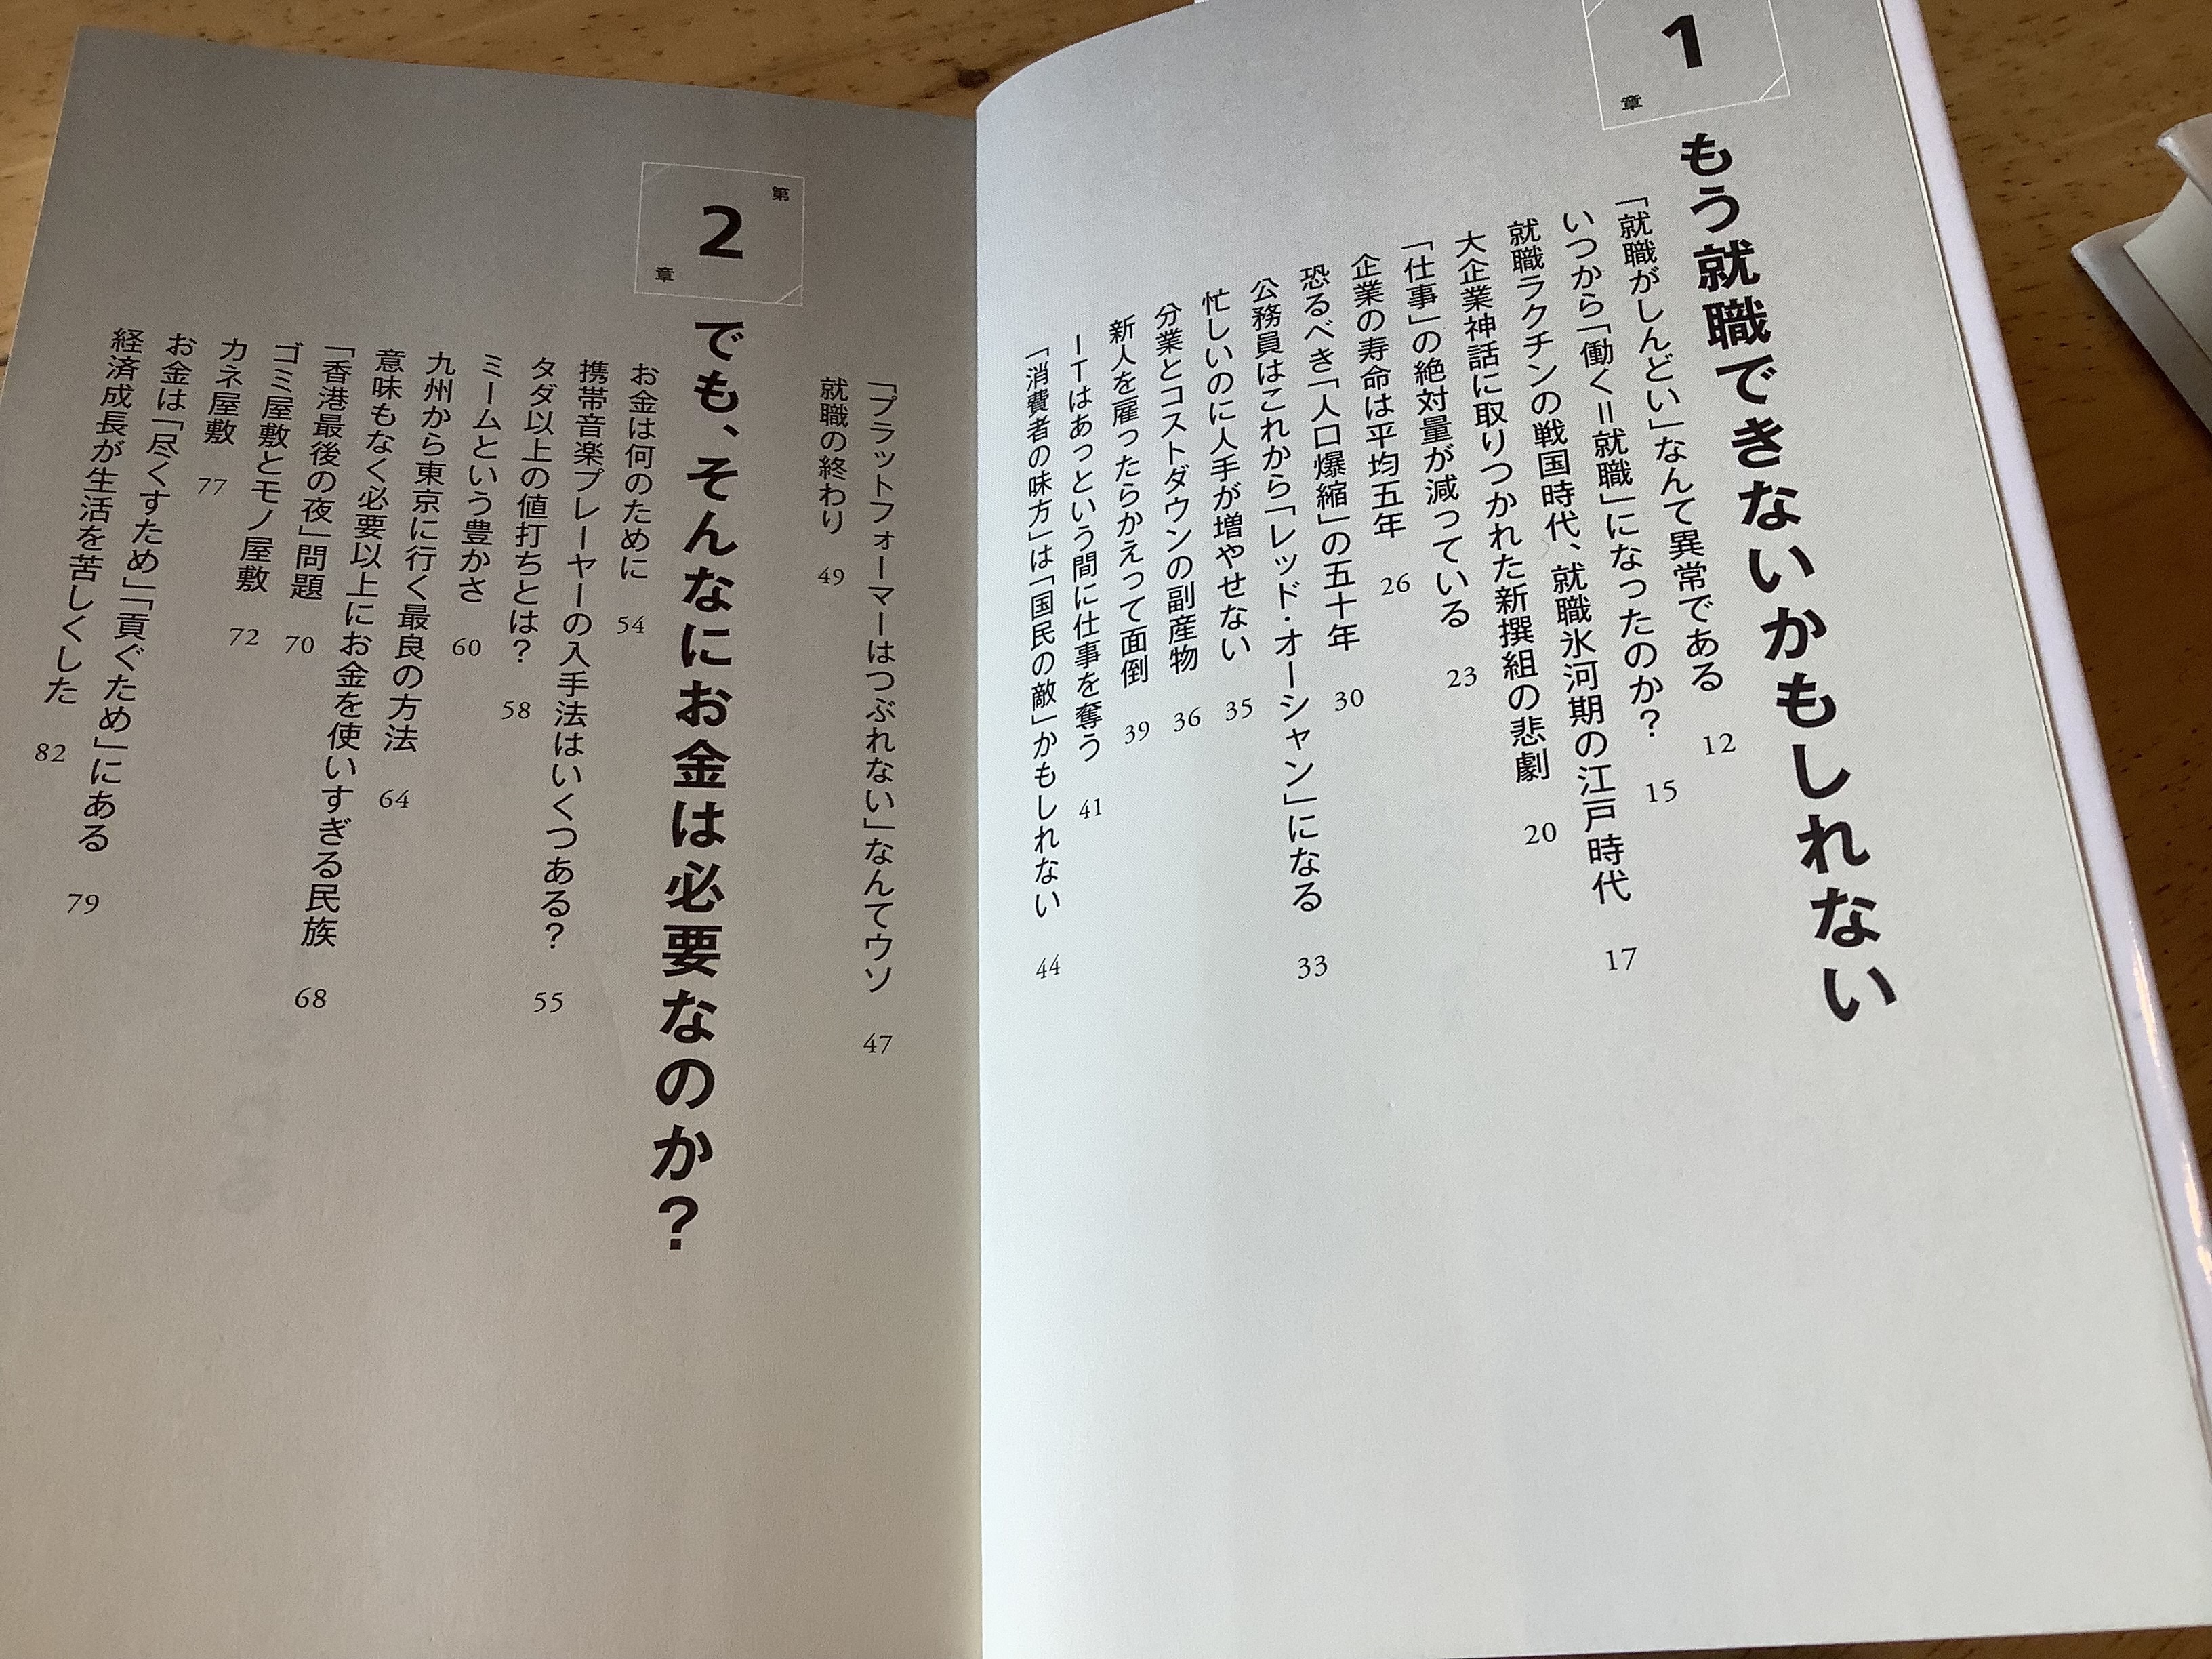 1
章
もう就職できないかもしれない
「就職がしんどい」なんて異常である 12
いつから「働く＝就職」になったのか？ 15
就職ラクチンの戦国時代、就職氷河期の江戸時代 17
大企業神話に取りつかれた新撰組の悲劇 20
「仕事」の絶対量が減っている 23
企業の寿命は平均五年 26
恐るべき「人口爆縮」の五十年 30
公務員はこれから「レッド・オーシャン」になる 33
忙しいのに人手が増やせない 35
分業とコストダウンの副産物 36
新人を雇ったらかえって面倒 39
ITはあっという間に仕事を奪う 41
「消費者の味方」は「国民の敵」かもしれない 44
「プラットフォーマーはつぶれない」なんてウソ 47
就職の終わり 49
第
2
章
でも、そんなにお金は必要なのか？
お金は何のために 54
携帯音楽プレーヤーの入手法はいくつある？ 55
タダ以上の値打ちとは？ 58
ミームという豊かさ 60
九州から東京に行く最良の方法 64
意味もなく必要以上にお金を使いすぎる民族 68
「香港最後の夜」問題 70
ゴミ屋敷とモノ屋敷 72
カネ屋敷 77
お金は「尽くすため」「貢ぐため」にある 79
経済成長が生活を苦しくした 82